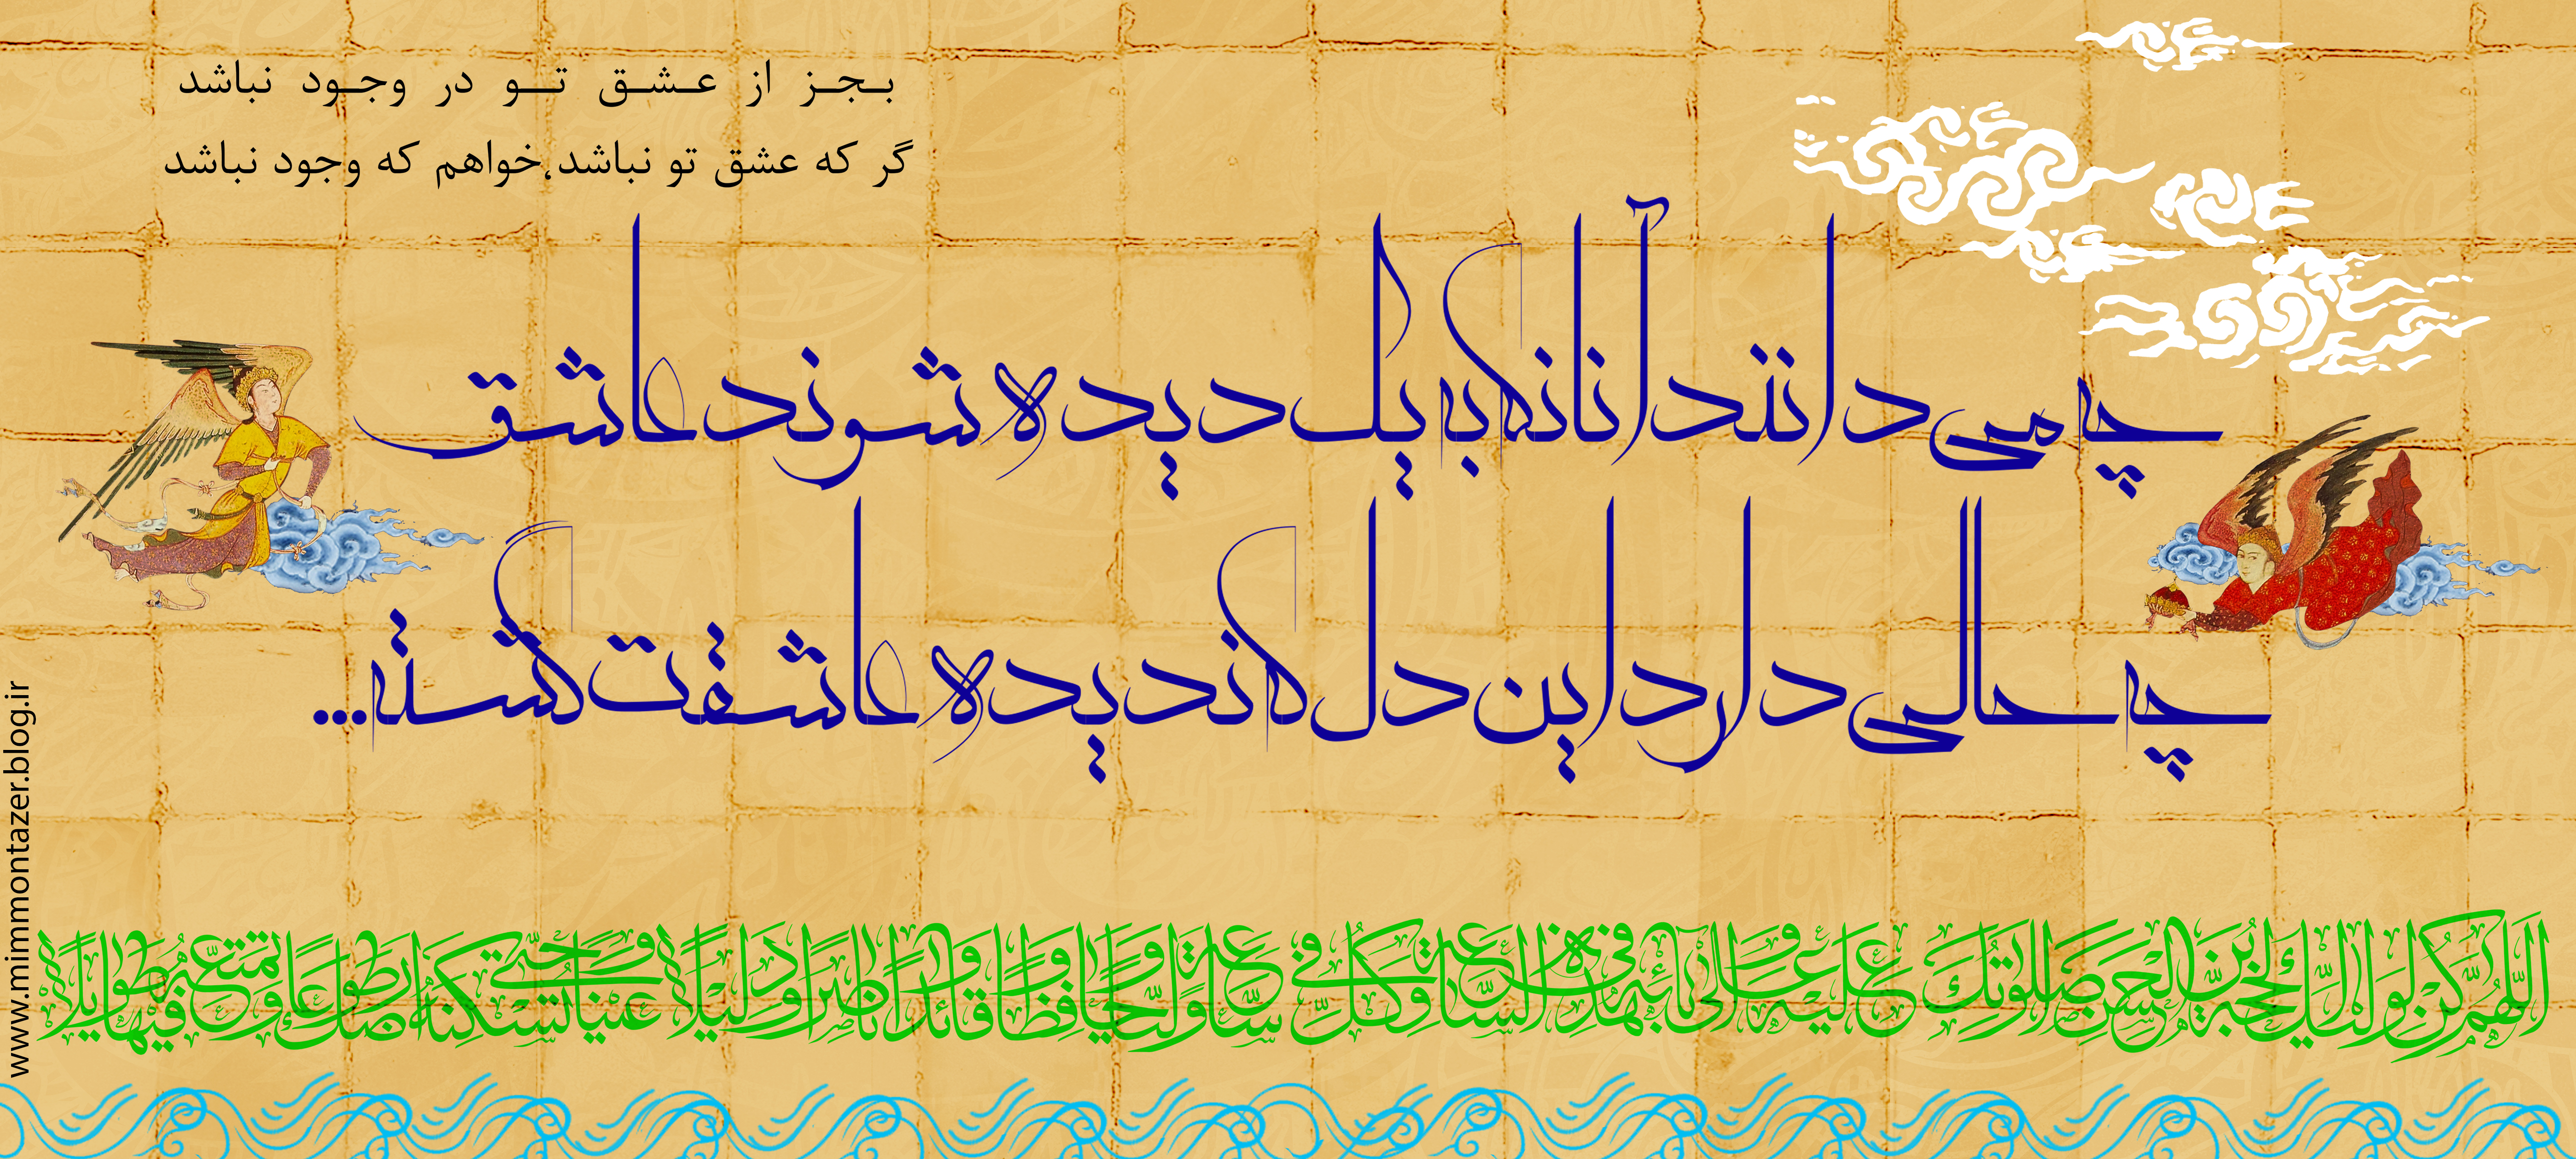 بجز از عشق تو در وجود نباشد
گر که عشق تو نباشد،خواهم که وجود نباشد
چه می دانند آنانکه به یک دیده شوند عاشق
چه حالی دارد این دل که ندیده عاشقت گشته...
اللهم کن لولیک الحجة بن الحسن صلواتک علیه و علی آبائه فی هذه الساعة و فی کل ساعة ولیا و حافظا و قائدا و ناصرا و دلیلا و عینا حتی تسکنه ارضک طوعا و تمتعه فیها طویلا
www.mimmontazer.blog.ir